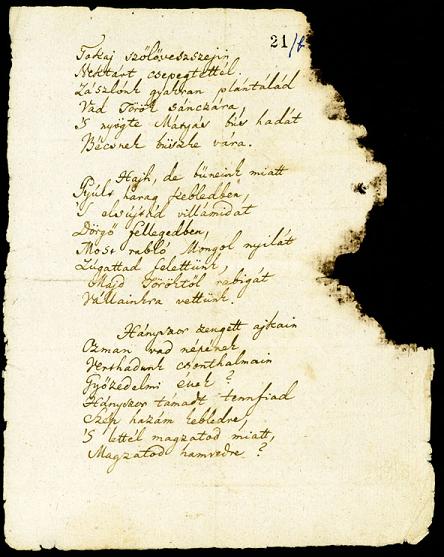 21/b
Tokaj szőlővesszejin
Nektárt csepegtettél.
Zászlónk gyakran plántálád
Vad Török sánczára,
'S nyögte Mátyás bús hadát
Bécsnek büszke vára.
Hajh, de bűneink miatt
Gyúlt harag kebledben,
'S elsújtád villámidat
Dörgő fellegedben,
Most rabló Mongol nyilát
Zúgattad felettünk,
Majd Töröktől rabigát
Vállainkra vettünk.
Hányszor zengett ajkain
Ozman vad népének
Vert hadunk csonthalmain
Győzedelmi ének?
Hányszor támadt tennfiad
Szép hazám kebledre,
'S lettél magzatod miatt,
Magzatod hamvvedre?